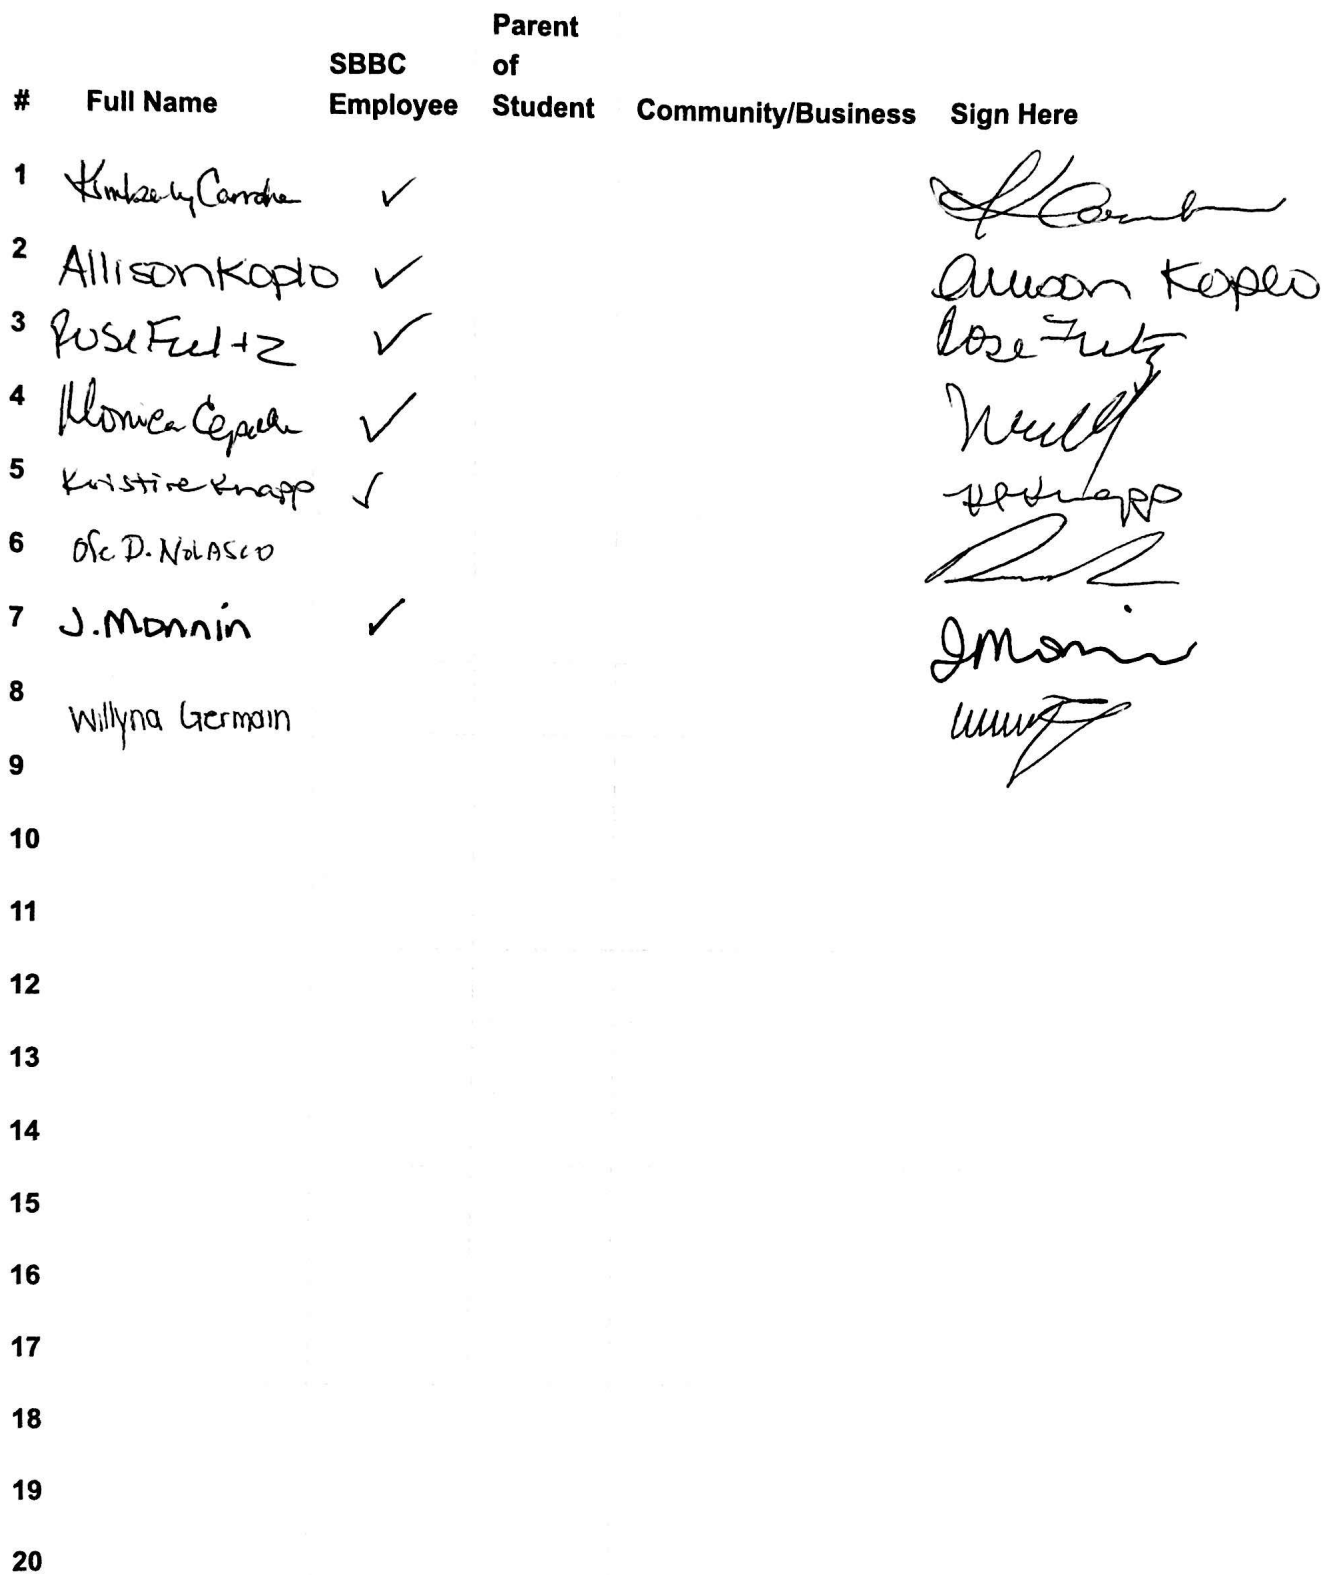 # Full Name SBBC Employee Parent of Student Community/Business Sign Here
1 Kimberly ✓
2 Allison Koplo ✓ Allison Koplo
3 Rose Feeltz ✓ Rose
4 Monica ✓
5 Kristine Knapp ✓ Knapp
6 Ofc D. NOLASCO
7 J. Monnin ✓ J Monnin
8 Willyna Germain
9
10
11
12
13
14
15
16
17
18
19
20